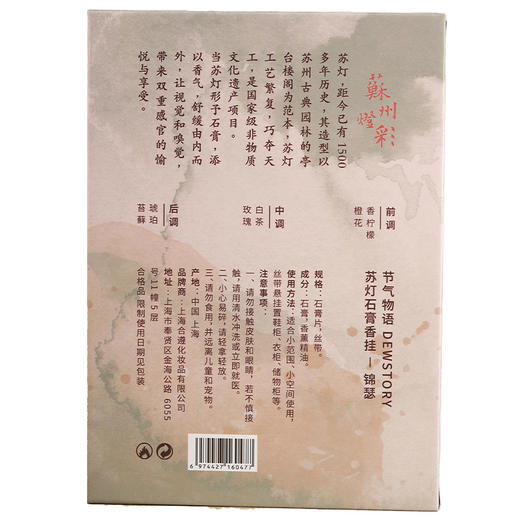 蘇州燈彩
苏灯，距今已有1500
多年历史，其造型以
苏州古典园林的亭
台楼阁为范本，苏灯
工艺繁复，巧夺天
工，是国家级非物质
文化遗产项目。
当苏灯形于石膏，添
以香气，舒缓由内而
外，让视觉和嗅觉，
带来双重感官的愉
悦与享受。
前调
香柠檬
橙花
中调
白茶
玫瑰
后调
琥珀
苔藓
节气物语 DEWSTORY
苏灯石膏香挂－锦瑟
规格：石膏片，丝带。
成分：石膏，香薰精油。
使用方法：适合小范围、小空间使用，
丝带悬挂置鞋柜、衣柜、储物柜等。
注意事项：
一、请勿接触皮肤和眼睛，若不慎接
触，请用清水冲洗或立即就医。
二、小心易碎，请轻拿轻放。
三、请勿食用，并远离儿童和宠物。
产地：中国 上海
品牌商：上海合遵化妆品有限公司
地址：上海市奉贤区金海公路 6055
号11幢5层
合格品 限制使用日期见包装
6 974427 160477